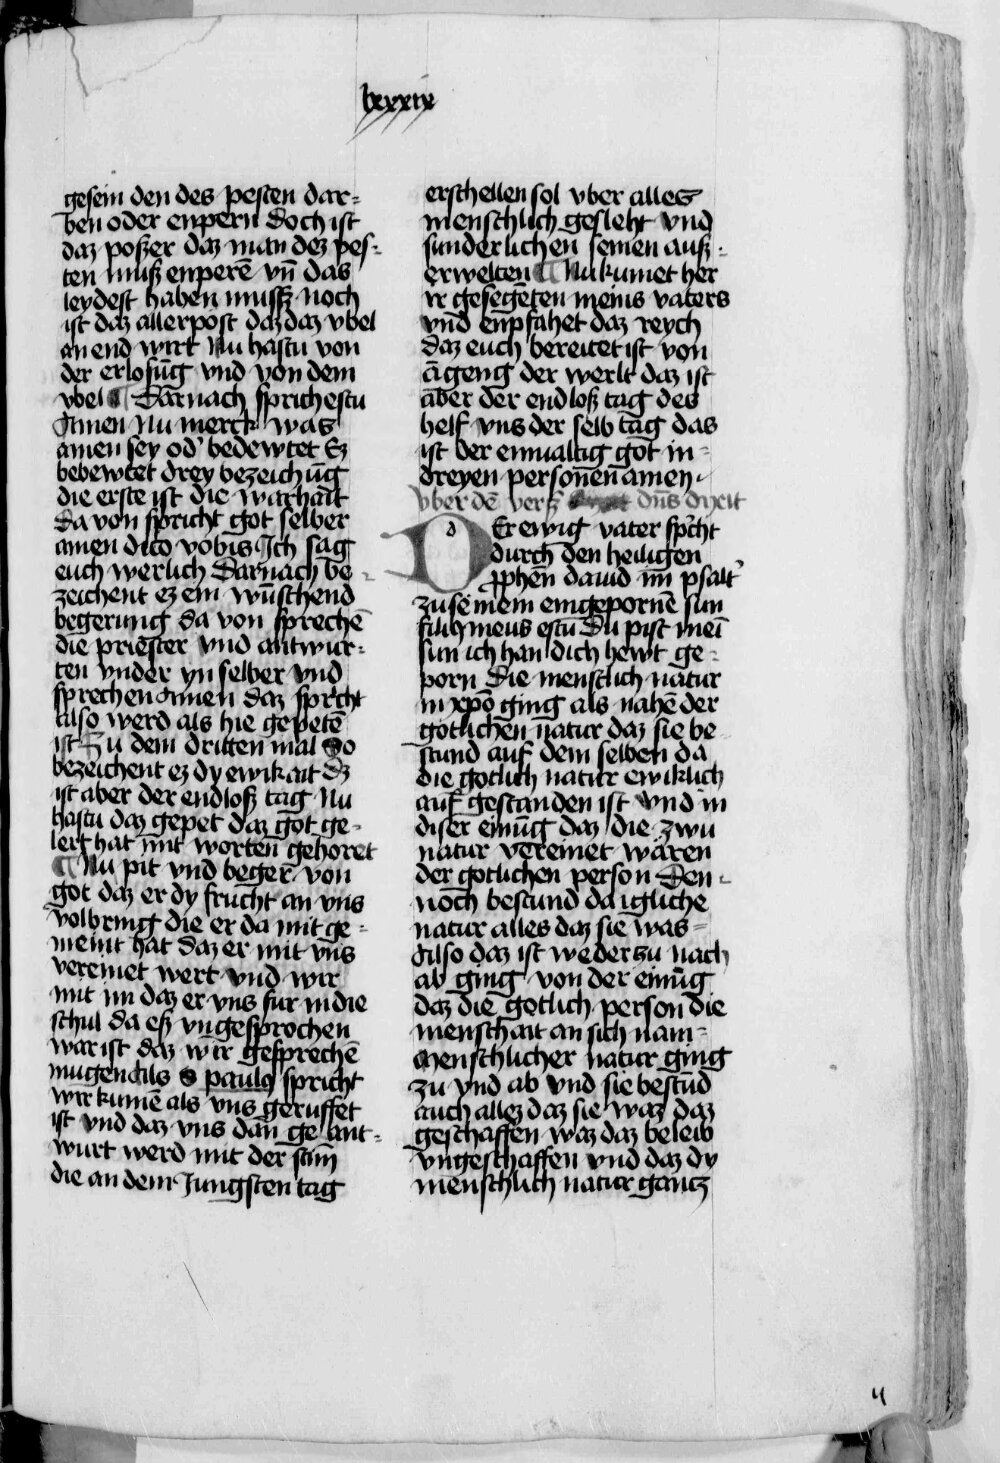 lxxxix
gesein den des pesten dar-
ben oder enpern doch ist
daz poszer daz man dez pes-
ten musz enperē vn̄ das
leydest haben mussz noch
ist daz allerpost daz daz vbel
an end wirt Nu hastu von
der erlosūg vnd von dem
vbel ¶ Darnach sprichestu
Amen Nu merck was
amen sey od' bedewtet Ez
bebewtet drey bezeichūg
die erste ist die warhait
Da von spricht got selber
amen dico vobis Ich sag
euch werlich Darnach be-
zeichent ez ein wūschend
begerung da von sprechē
die priester vnd antwur-
ten vnder yn selber vnd
sprechen Amen daz spricht
also werd als hie gepetē
ist Zu dem dritten mal So
bezeichent ez dy ewikait dz
ist aber der endlosz tag Nu
hastu daz gepet daz got ge-
lert hat mit worten gehoret
¶ Nu pit vnd beger von
got daz er dy frucht an vns
volbring die er da mit ge-
meint hat daz er mit vns
vereinet wert vnd wir
mit im daz er vns fur in die
schul da esz vngesprochen
war ist daz wir gesprechē
mugen Als S paulꝯ spricht
wir kumē als vns geruffet
ist vnd daz vns dan ge ant-
wurt werd mit der stim̄
die an dem Jungsten tag
erschellen sol vber alles
menschlich geslecht vnd
sunderlichen seinen ausz-
erwelten ¶ Nu kumet her
ir gesegēten meins vaters
vnd enpfahet daz reych
daz euch bereitet ist von
āgeng der werlt daz ist
aber der endlosz tag des
helf vns der selb tag das
ist der einualtig got in-
dreyen personen amen
Vber dē versz dn̄s dixit
d
Er ewig vater spr̄cht
durch den heiligen
ꝓphen̄ dauid im psalt'
zu seinem eingepornē sun
filiꝯ meus es tu Du pist mei
sun ich han dich hewt ge-
porn Die menschlich natur
in xp̄o ging als nahē der
gotlichen natur daz sie be
stund auf dem selben da
die gotlich natur ewiklich
auf gestanden ist vnd in
diser einūg daz die zwu
natur vereinet wāren
der gotlichen person Den-
noch bestund da igliche
natur alles daz sie was
Also daz ist weder zu nach
ab ging von der einūg
daz die gotlich person die
menschait an sich nam
Menschlicher natur ging
zu vnd ab vnd sie bestūd
auch allez daz sie waz daz
geschaffen waz daz beleib
vngeschaffen vnd daz dy
menschlich natur gantz